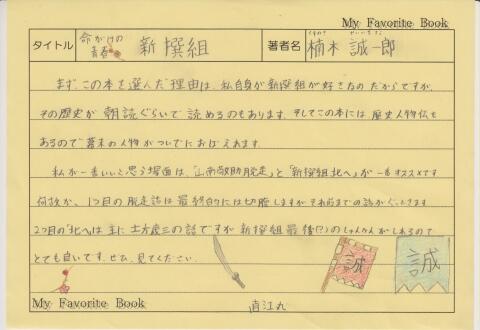 My Favorite Book
タイトル 命がけの青春 新撰組 著者名 楠木誠一郎
まず、この本を選んだ理由は、私自身が新撰組が好きなのだからですが、
その歴史が朝読ぐらいで読めるのもあります。そしてこの本には歴史人物伝も
あるので幕末の人物がついでにおぼえれます。
私が一番いいと思う場面は、「山南敬助脱走」と「新撰組北へ」が一番オススメです
何故か、1つ目の脱走話は最終的には切腹しますがそれ前までの話が
2つ目の「北へ」は主に土方歳三の話ですが新撰組最後(?)のしゅんかんがしれるので
とても良いです。ぜひ、見てください。
誠
誠
My Favorite Book
直江丸